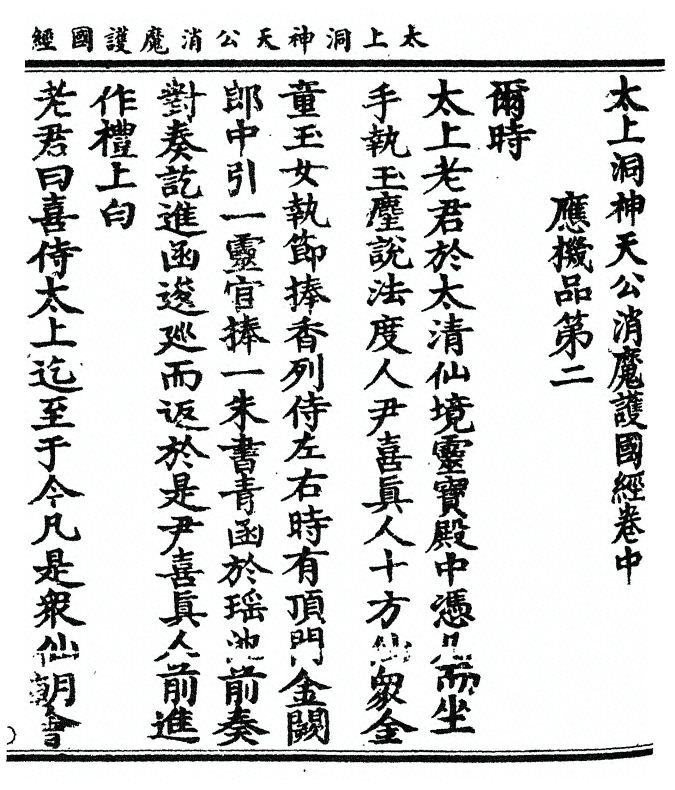 太上洞神天公消魔護國經
太上洞神天公消魔護國經卷中
應機品第二
爾時
太上老君於太清仙境靈寶殿中憑几而坐
手執玉麈說法度人尹喜眞人十方仙衆金
童玉女執節捧香列侍左右時有頂門金闕
郎中引一靈官捧一朱書青函於瑶池前奏
對奏訖進函逡廵而返於是尹喜眞人前進
作禮上白
老君曰喜侍太上迄至于今凡是衆仙朝會